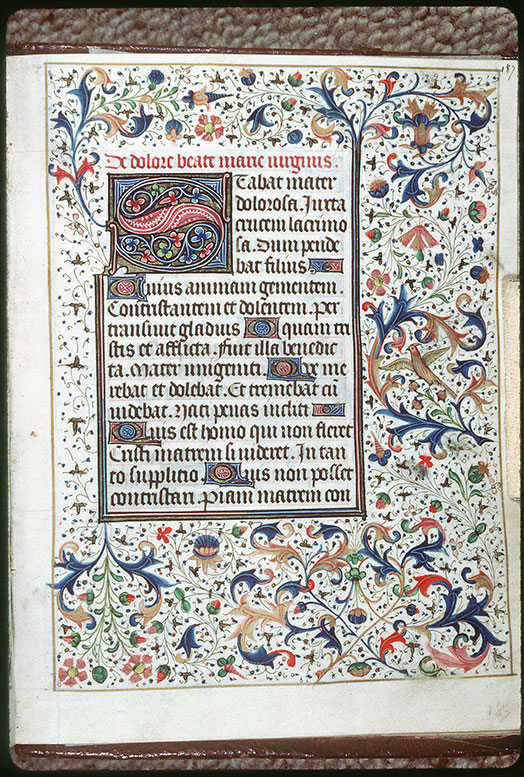 187
De dolore beate marie virginis.
Stabat mater
dolorosa. Iuxta
crucem lacrimo
sa. Dum pende
bat filius
Cuius animam gementem
Contristantem et dolentem. per
transivit gladius O quam tri
stis et afflicta. fuit illa benedic
ta. Mater unigeniti. Que me
rebat et dolebat. Et tremebat cū
videbat. Nati penas incliti
Quis est homo qui non fleret
Cristi matrem si videret. In tan
to supplicio Quis non posset
contristari. Piam matrem con